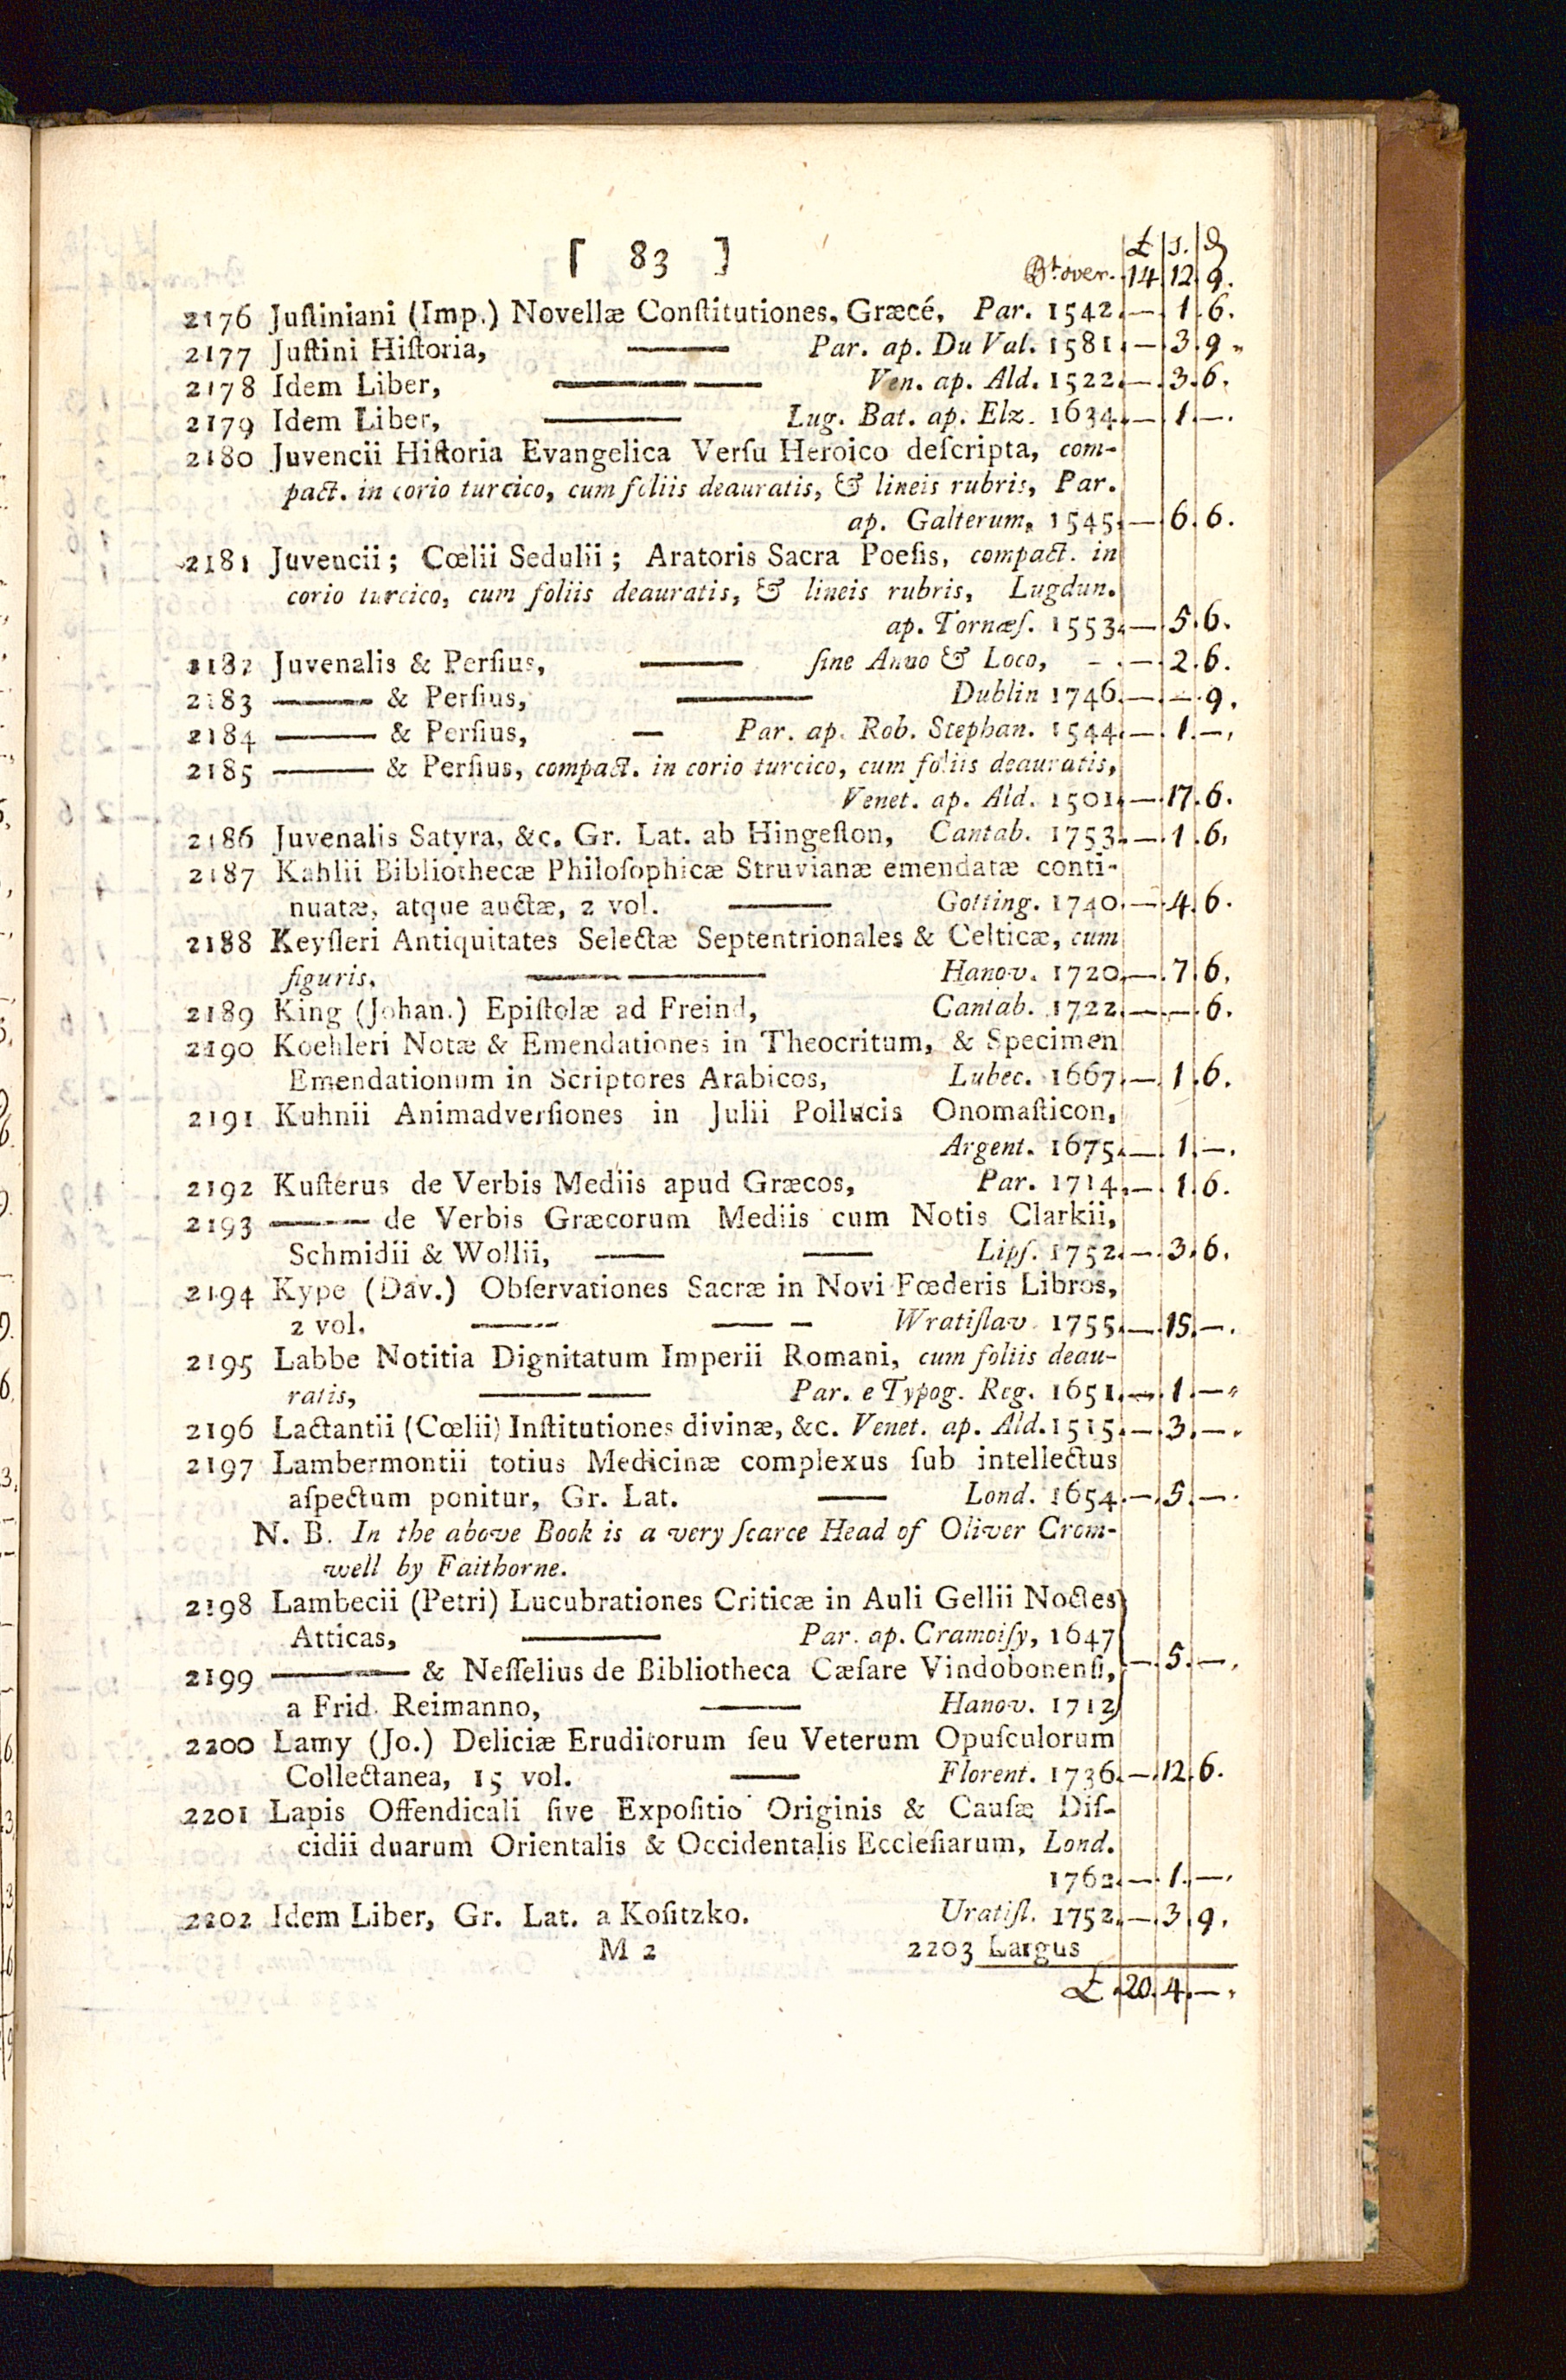 [ 83 ]
£ s. d
Bt over. 14 12 9.
2176 Juſtiniani (Imp.) Novellæ Conſtitutiones, Græcé, Par. 1542. — 1. 6.
2177 Juſtini Hiſtoria, —— Par. ap. Du Val. 1581. — 3. 9.
2178 Idem Liber, —— —— Ven. ap. Ald. 1522. — 3. 6.
2179 Idem Liber, —— Lug. Bat. ap. Elz. 1634. — 1. —.
2180 Juvencii Hiſtoria Evangelica Verſu Heroico deſcripta, com-
pact. in corio turcico, cum foliis deauratis, & lineis rubris, Par.
ap. Galterum, 1545. — 6. 6.
2181 Juvencii; Cœlii Sedulii; Aratoris Sacra Poeſis, compact. in
corio turcico, cum foliis deauratis, & lineis rubris, Lugdun.
ap. Tornæſ. 1553. — 5. 6.
2182 Juvenalis & Perſius, —— ſine Anno & Loco, - . — 2. 6.
2183 —— & Perſius, —— Dublin 1746. — — 9.
2184 —— & Perſius, — Par. ap. Rob. Stephan. 1544. — 1. —.
2185 —— & Perſius, compact. in corio turcico, cum foliis deauratis,
Venet. ap. Ald. 1501. — 17. 6.
2186 Juvenalis Satyra, &c. Gr. Lat. ab Hingeſton, Cantab. 1753. — 1. 6.
2187 Kahlii Bibliothecæ Philoſophicæ Struvianæ emendatæ conti-
nuatæ, atque auctæ, 2 vol. —— Gotting. 1740. — 4. 6.
2188 Keyſleri Antiquitates Selectæ Septentrionales & Celticæ, cum
figuris, —— —— Hanov. 1720. — 7. 6.
2189 King (Johan.) Epiſtolæ ad Freind, Cantab. 1722. — — 6.
2190 Koehleri Notæ & Emendationes in Theocritum, & Specimen
Emendationum in Scriptores Arabicos, Lubec. 1667. — 1. 6.
2191 Kuhnii Animadverſiones in Julii Pollucis Onomaſticon,
Argent. 1675. — 1. —.
2192 Kuſterus de Verbis Mediis apud Græcos, Par. 1714. — 1. 6.
2193 —— de Verbis Græcorum Mediis cum Notis Clarkii,
Schmidii & Wollii, —— —— Lipſ. 1752. — 3. 6.
2194 Kype (Dav.) Obſervationes Sacræ in Novi Fœderis Libros,
2 vol. —— —— — Wratiſlav 1755. — 15. —.
2195 Labbe Notitia Dignitatum Imperii Romani, cum foliis deau-
ratis, —— —— Par. e Typog. Reg. 1651. — 1. —.
2196 Lactantii (Cœlii) Inſtitutiones divinæ, &c. Venet. ap. Ald. 1515. — 3. —.
2197 Lambermontii totius Medicinæ complexus ſub intellectus
aſpectum ponitur, Gr. Lat. —— Lond. 1654. — 5. —.
N. B. In the above Book is a very ſcarce Head of Oliver Crom-
well by Faithorne.
2198 Lambecii (Petri) Lucubrationes Criticæ in Auli Gellii Noctes
Atticas, —— Par. ap. Cramoiſy, 1647
2199 —— & Neſſelius de Bibliotheca Cæſare Vindobonenſi, — 5. —.
a Frid. Reimanno, —— Hanov. 1712
2200 Lamy (Jo.) Deliciæ Eruditorum ſeu Veterum Opuſculorum
Collectanea, 15 vol. —— Florent. 1736. — 12. 6.
2201 Lapis Offendicali ſive Expoſitio Originis & Cauſæ Diſ-
cidii duarum Orientalis & Occidentalis Eccleſiarum, Lond.
1762. — 1. —.
2202 Idem Liber, Gr. Lat. a Koſitzko. Uratiſl. 1752. — 3. 9.
M 2 2203 Largus
£ 20. 4. —.